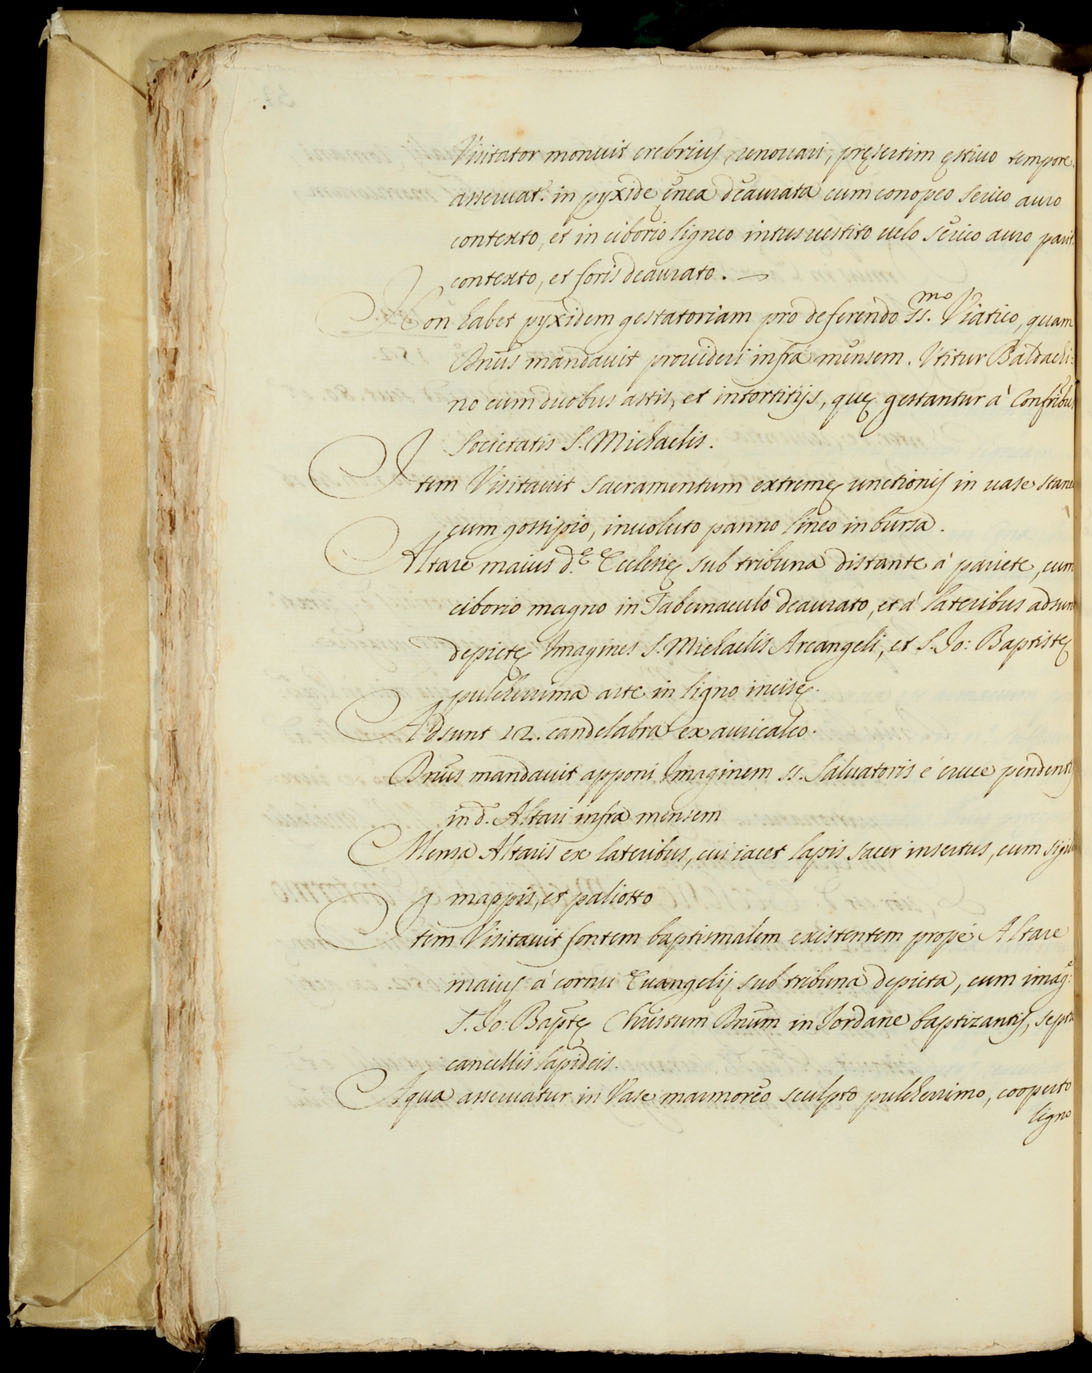 Visitator monuit crebrius renouari, pręsertim ęstiuo tempore
asseruat.r in pyxide ęnea deaurata cum conopeo serico auro
contexto, et in ciborio ligneo intus uestito uelo serico auro parit.
contexto, et foris deaurato.
Non habet pyxidem gestatoriam pro deferendo SS.mo Viatico, quam
Dnūs mandauit prouideri infra mensem. Vtitur Baldachi-
no cum duobus astis, et intortitijs, quę gestantur à Confrībus
Societatis S. Michaelis.
Item Visitauit sacramentum extremę unctionis in uase stan
cum gossipio, inuoluto panno lineo in bursa.
Altare maius d.ę Ecclesię sub tribuna distante à pariete, cum
ciborio magno in Tabernaculo deaurato, et à lateribus adsun
depictę Imagines S. Michaelis Arcangeli, et S. Jo: Baptistę
pulcherrima arte in ligno incisę.
Adsunt 12. candelabra ex auricalco.
Dnūs mandauit apponi Imaginem SS. Saluatoris è cruce pendent
in d.o Altari infra mensem
Mensa Altaris ex lateribus, cui iacet lapis sacer insertus, cum
mappis, et paliotto
Item Visitauit fontem baptismalem existentem propè Altare
maius à cornu Euangelij sub tribuna depicta, cum imag.e
S. Jo: Baptę Christum Dnūm in Jordane baptizantis, sept
cancellis lapideis.
Aqua asseruatur in Vase marmoreo sculpto pulcherrimo, cooperto
ligno